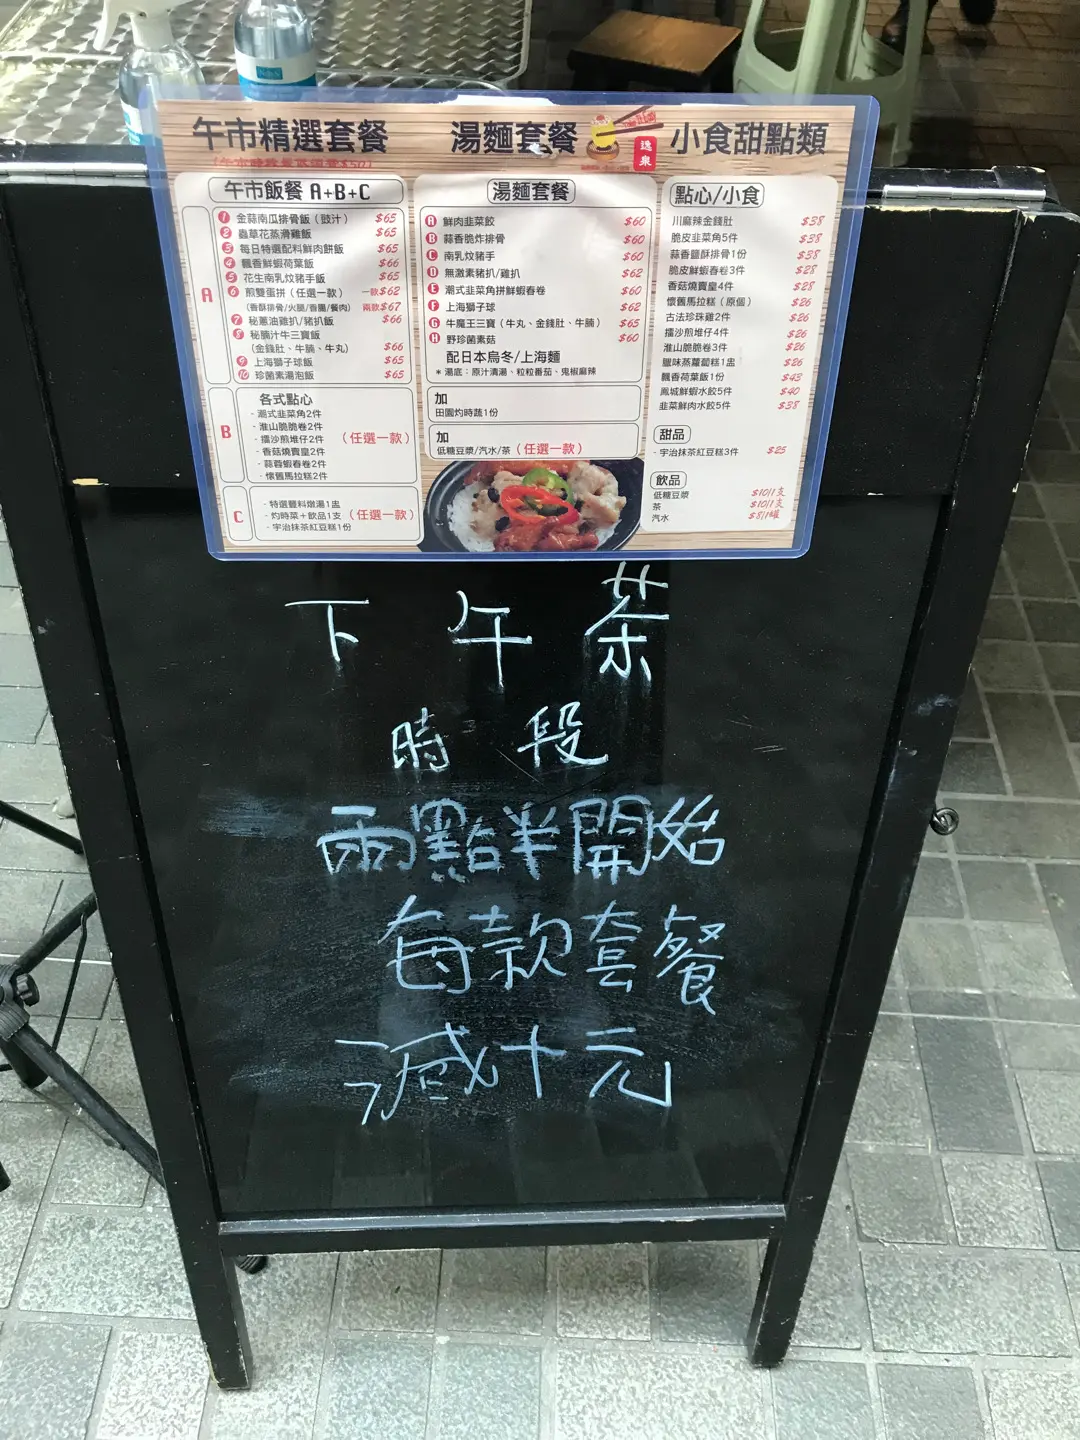 午市精選套餐
湯麵套餐
逸泉
小食甜點類
午市飯餐 A+B+C
A
1 金蒜南瓜排骨飯（豉汁） $65
2 蟲草花蒸滑雞飯 $65
3 每日特選配料鮮肉餅飯 $65
4 飄香鮮蝦荷葉飯 $66
5 花生南乳炆豬手飯 $65
6 煎雙蛋拼（任選一款） 一款$62
（香酥排骨/火腿/香腸/餐肉） 兩款$67
7 秘蔥油雞扒/豬扒飯 $66
8 秘腩汁牛三寶飯
（金錢肚、牛腩、牛丸） $66
9 上海獅子球飯 $65
10 珍菌素湯泡飯 $65
B
各式點心
- 潮式韭菜角2件
- 淮山脆脆卷2件
- 擂沙煎堆仔2件
- 香菇燒賣皇2件
- 蒜蓉蝦春卷2件
- 懷舊馬拉糕2件
（任選一款）
C
- 特選豐料燉湯1盅
- 灼時菜＋飲品1支
- 宇治抹茶紅豆糕1份
（任選一款）
湯麵套餐
A 鮮肉韭菜餃 $60
B 蒜香脆炸排骨 $60
C 南乳炆豬手 $60
D 無激素豬扒/雞扒 $62
E 潮式韭菜角拼鮮蝦春卷 $60
F 上海獅子球 $62
G 牛魔王三寶（牛丸、金錢肚、牛腩） $65
H 野珍菌素菇 $60
配日本烏冬/上海麵
* 湯底：原汁清湯、粒粒番茄、鬼椒麻辣
加
田園灼時蔬1份
加
低糖豆漿/汽水/茶（任選一款）
點心/小食
川麻辣金錢肚 $38
脆皮韭菜角5件 $38
蒜香鹽酥排骨1份 $38
脆皮鮮蝦春卷3件 $28
香菇燒賣皇4件 $28
懷舊馬拉糕（原個） $26
古法珍珠雞2件 $26
擂沙煎堆仔4件 $26
淮山脆脆卷3件 $26
臘味蒸蘿蔔糕1盅 $26
飄香荷葉飯1份 $43
鳳城鮮蝦水餃5件 $40
韭菜鮮肉水餃5件 $38
甜品
- 宇治抹茶紅豆糕3件 $25
飲品
低糖豆漿 $10/1支
茶 $10/1支
汽水 $8/1罐
下午茶
時段
兩點半開始
每款套餐
減十元